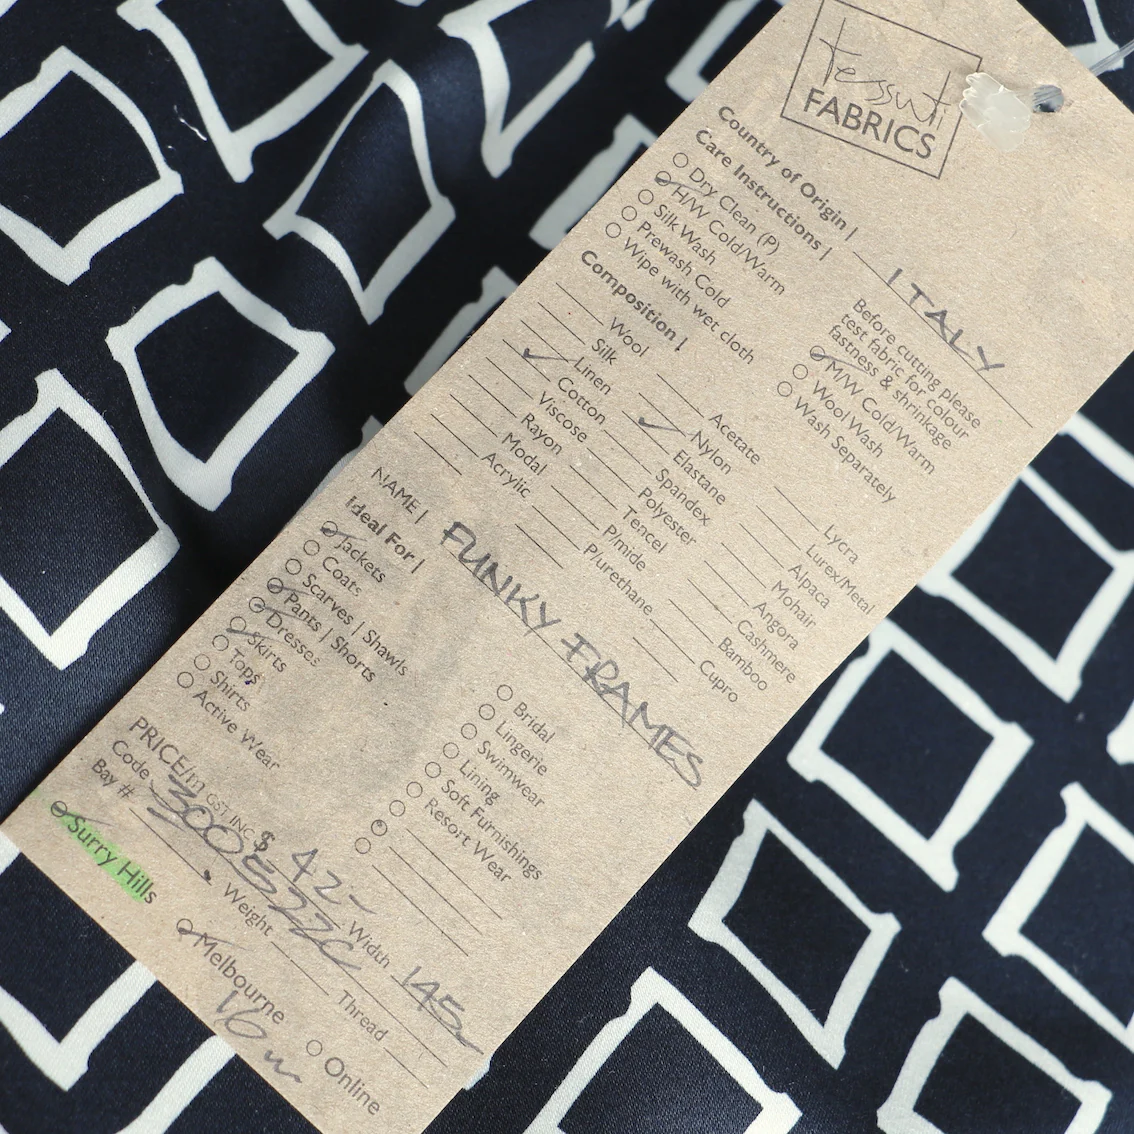 tessuti
FABRICS
Country of Origin | ITALY
Care Instructions |
Before cutting please
test fabric for colour
fastness & shrinkage
Dry Clean (P)
H/W Cold/Warm
Silk Wash
Prewash Cold
Wipe with wet cloth
M/W Cold/Warm
Wool Wash
Wash Separately
Composition |
Wool
Silk
Linen
Cotton
Viscose
Rayon
Modal
Acrylic
Acetate
Nylon
Elastane
Spandex
Polyester
Tencel
P/mide
P/urethane
Lycra
Lurex/Metal
Alpaca
Mohair
Angora
Cashmere
Bamboo
Cupro
NAME | FUNKY FRAMES
Ideal For |
Jackets
Coats
Scarves | Shawls
Pants | Shorts
Dresses
Skirts
Tops
Shirts
Active Wear
Bridal
Lingerie
Swimwear
Lining
Soft Furnishings
Resort Wear
PRICE/m GST INC $ 42- Width 145
Code
Bay # Weight Thread
Surry Hills Melbourne Online
16m